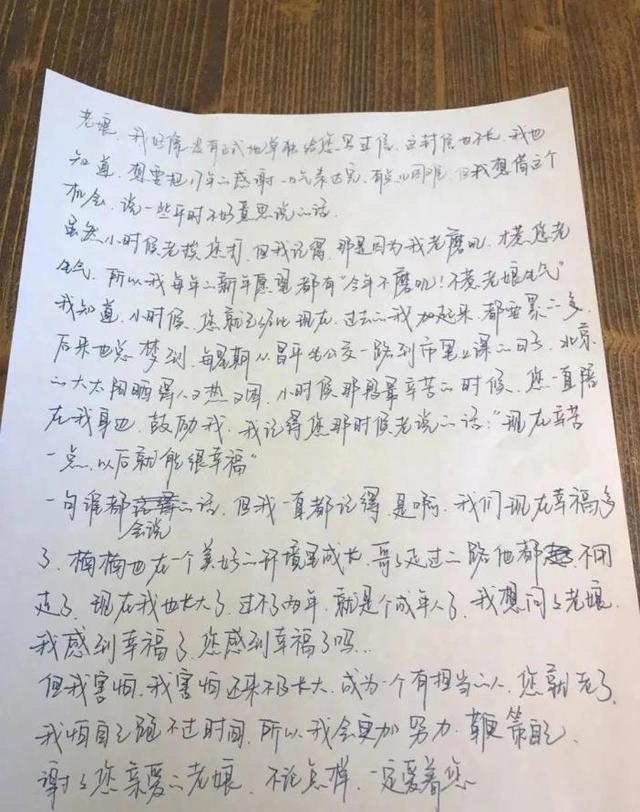 老娘，我好像没有正式地单独给您写过信，这封信也不长，我也
知道，想要把17年的感谢一口气表达完，有点儿困难，但我想借这个
机会，说一些平时不好意思说的话。
虽然小时候老挨您打，但我记得，那是因为我老磨叽，才惹您老
生气，所以我每年的新年愿望都有“今年不磨叽！不惹老娘生气”
我知道，小时候，您就已经比现在、过去的我加起来，都要累的多，
后来也总梦到，每星期从昌平坐公交一路到市里上课的日子，北京
的大太阳晒得人又热又困，小时候那段最辛苦的时候，您一直陪
在我身边，鼓励我，我记得您那时候老说的话：“现在辛苦
一点，以后就能很幸福”
一句谁都会说的话，但我一直都记得，是啊，我们现在幸福多
了，楠楠也在一个美好的环境里成长，哥哥走过的路他都不用
走了，现在我也长大了，过不了两年，就是个成年人了，我想问问老娘，
我感到幸福了，您感到幸福了吗…
但我害怕，我害怕还来不及长大，成为一个有担当的人，您就老了，
我怕自己跑不过时间，所以我会更加努力，鞭策自己，
谢谢您亲爱的老娘，不论怎样，一定爱着您